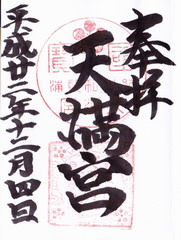 奉拝
天満宮
平成廿二年十二月四日